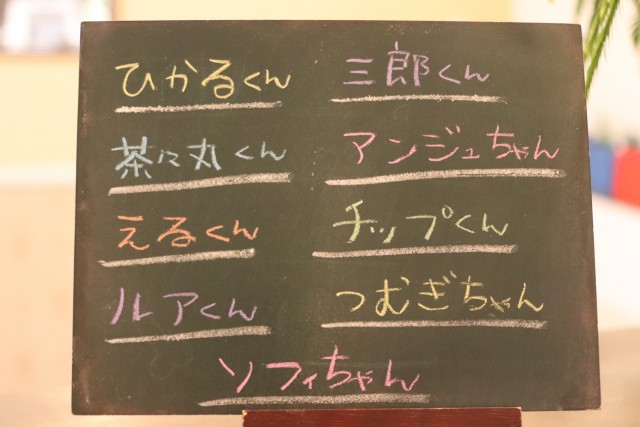 ひかるくん 三郎くん
茶々丸くん アンジュちゃん
えるくん チップくん
ルアくん つむぎちゃん
ソフィちゃん